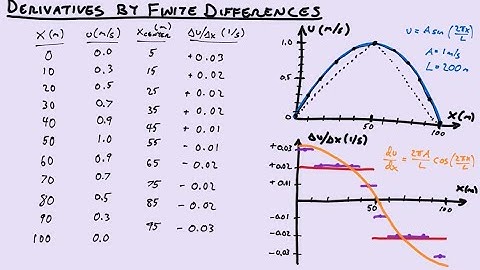 DERIVATIVES BY FINITE DIFFERENCES
X (m) U (m/s) XCENTER (m) ΔU/ΔX (1/s)
0 0.0 5 +0.03
10 0.3 15 +0.02
20 0.5 25 +0.02
30 0.7 35 +0.02
40 0.9 45 +0.01
50 1.0 55 -0.01
60 0.9 65 -0.02
70 0.7 75 -0.02
80 0.5 85 -0.02
90 0.3 95 -0.03
100 0.0
U (m/s)
U = A sin (2πX/L)
A = 1 m/s
L = 200m
1.0
0.5
50 100
X (m)
ΔU/ΔX (1/s)
+0.03
+0.02
+0.01
dU/dX = 2πA/L cos (2πX/L)
X(m)
50 100
-0.01
-0.02
-0.03